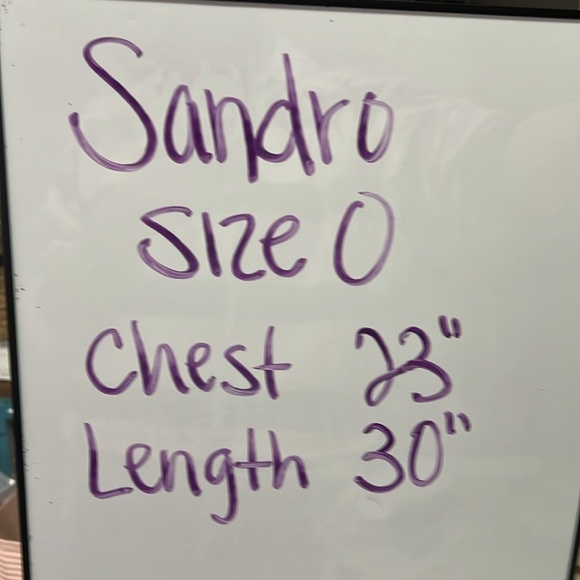 Sandro
size 0
Chest 23"
Length 30"